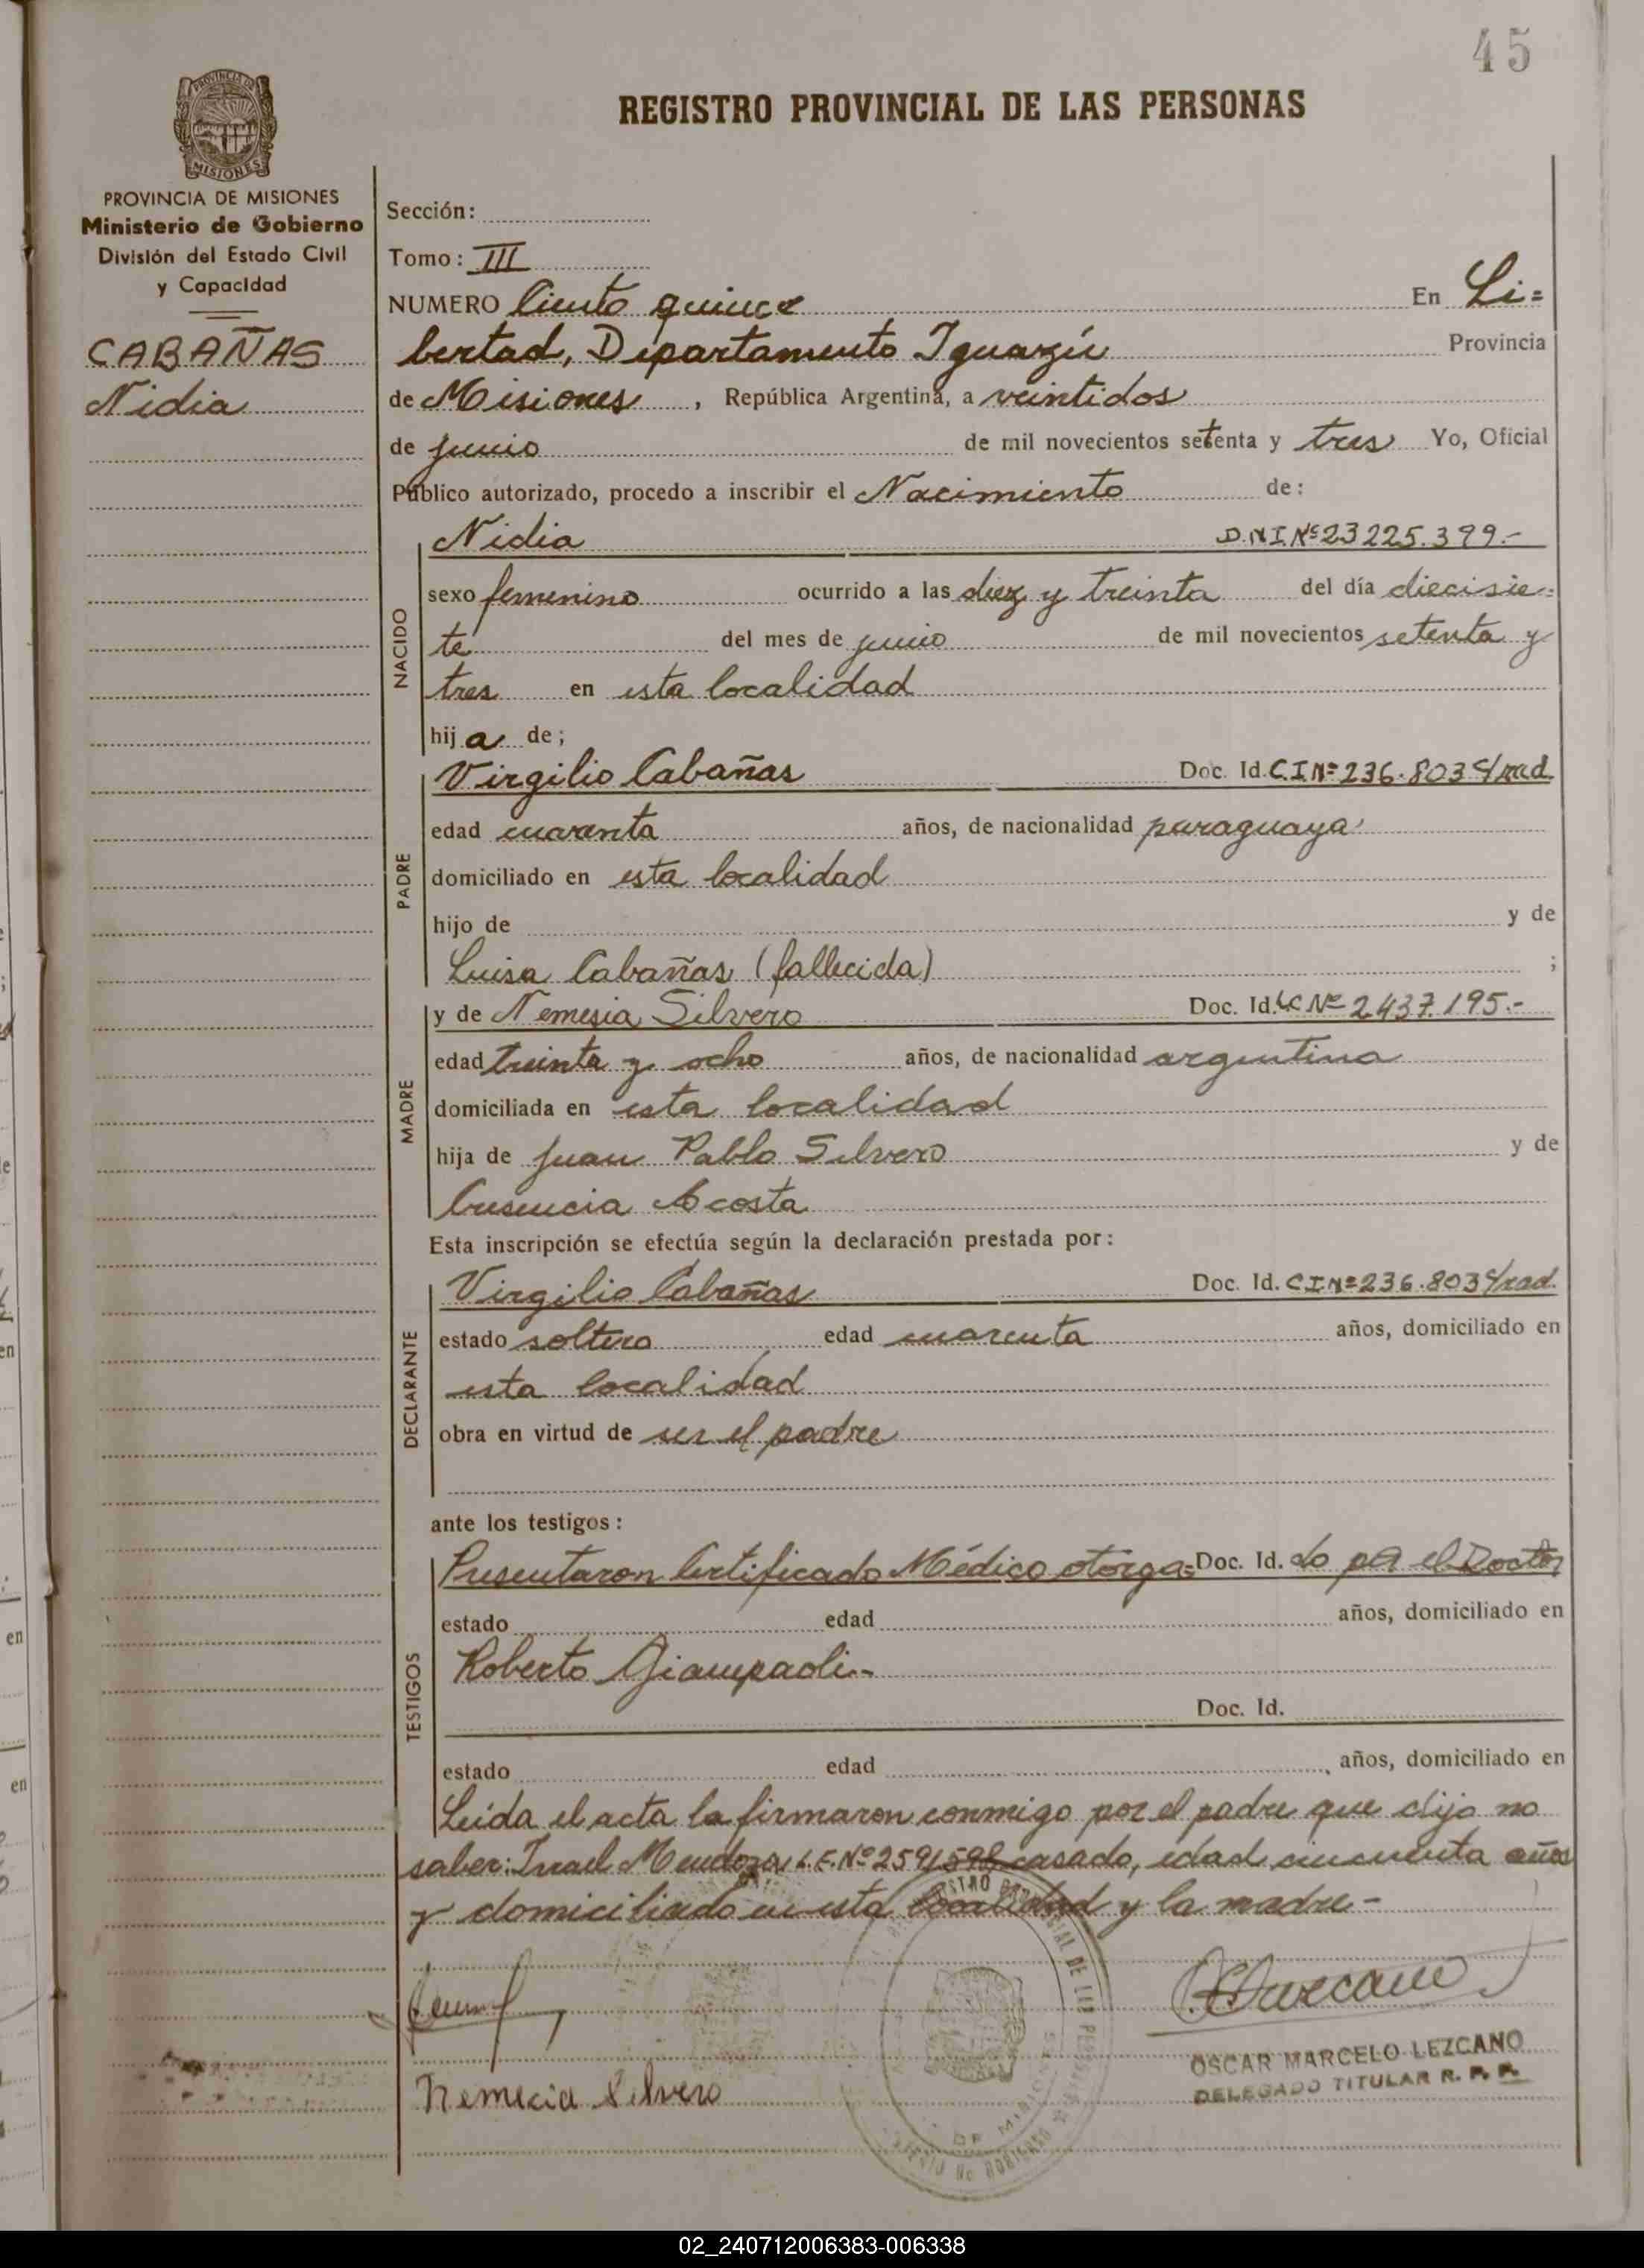 45
REGISTRO PROVINCIAL DE LAS PERSONAS
PROVINCIA DE MISIONES
PROVINCIA DE MISIONES
Ministerio de Gobierno
División del Estado Civil
y Capacidad
CABAÑAS
Nidia
Sección:
Tomo: III
NUMERO Ciento quince En Li=
bertad, Departamento Iguazú Provincia
de Misiones, República Argentina, a veintidos
de junio de mil novecientos setenta y tres Yo, Oficial
Público autorizado, procedo a inscribir el Nacimiento de:
NACIDO
Nidia D.N.I.Nº23225.399.-
sexo femenino ocurrido a las diez y treinta del día diecisie=
te del mes de junio de mil novecientos setenta y
tres en esta localidad
hija de;
PADRE
Virgilio Cabañas Doc. Id. C.I.Nº236.803
edad cuarenta años, de nacionalidad paraguaya
domiciliado en esta localidad
hijo de y de
Luisa Cabañas (fallecida) ;
MADRE
y de Nemesia Silvero Doc. Id. LC Nº 2.437.195.-
edad treinta y ocho años, de nacionalidad argentina
domiciliada en esta localidad
hija de Juan Pablo Silvero y de
Cresencia Acosta
Esta inscripción se efectúa según la declaración prestada por:
DECLARANTE
Virgilio Cabañas Doc. Id. C.I.Nº236.803
estado soltero edad cuarenta años, domiciliado en
esta localidad
obra en virtud de ser el padre
ante los testigos:
TESTIGOS
Presentaron Certificado Médico otorga= Doc. Id. do por el Doctor
estado edad años, domiciliado en
Roberto Giampaoli.-
Doc. Id.
estado edad años, domiciliado en
Leída el acta la firmaron conmigo por el padre que dijo no
saber: Israel Mendoza L.E.Nº2591598 casado, edad cincuenta años
y domiciliado en esta localidad y la madre-
OSCAR MARCELO LEZCANO
DELEGADO TITULAR R. P. P.
Nemecia Silvero
02_240712006383-006338